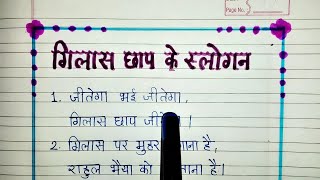 Page No.
गिलास छाप के स्लोगन
1. जीतेगा भई जीतेगा,
गिलास छाप ।
2. गिलास पर मुहर है,
राहुल भैया को है।